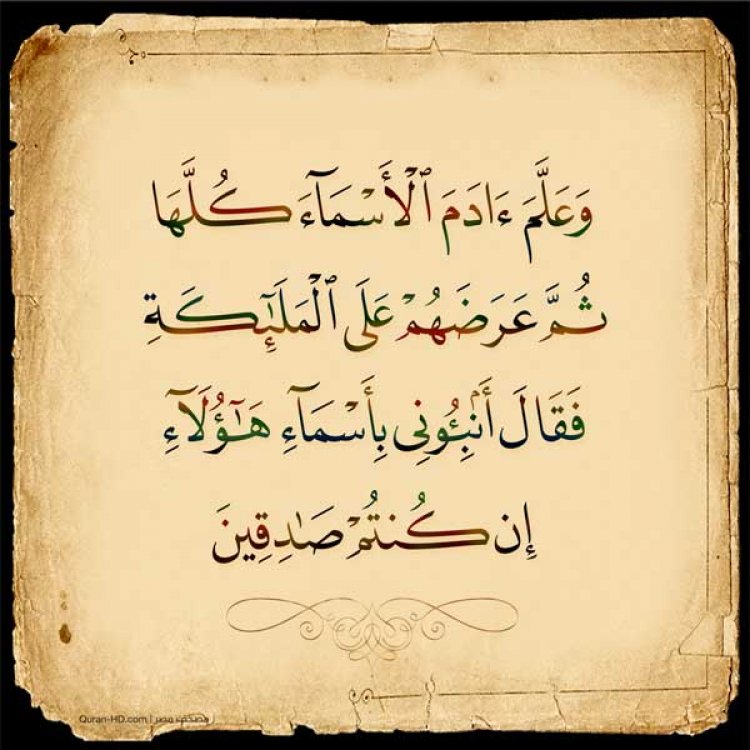 وَعَلَّمَ ءَادَمَ ٱلْأَسْمَآءَ كُلَّهَا
ثُمَّ عَرَضَهُمْ عَلَى ٱلْمَلَٰٓئِكَةِ
فَقَالَ أَنۢبِـُٔونِى بِأَسْمَآءِ هَٰٓؤُلَآءِ
إِن كُنتُمْ صَٰدِقِينَ
Quran-HD.com | مصحف مصر